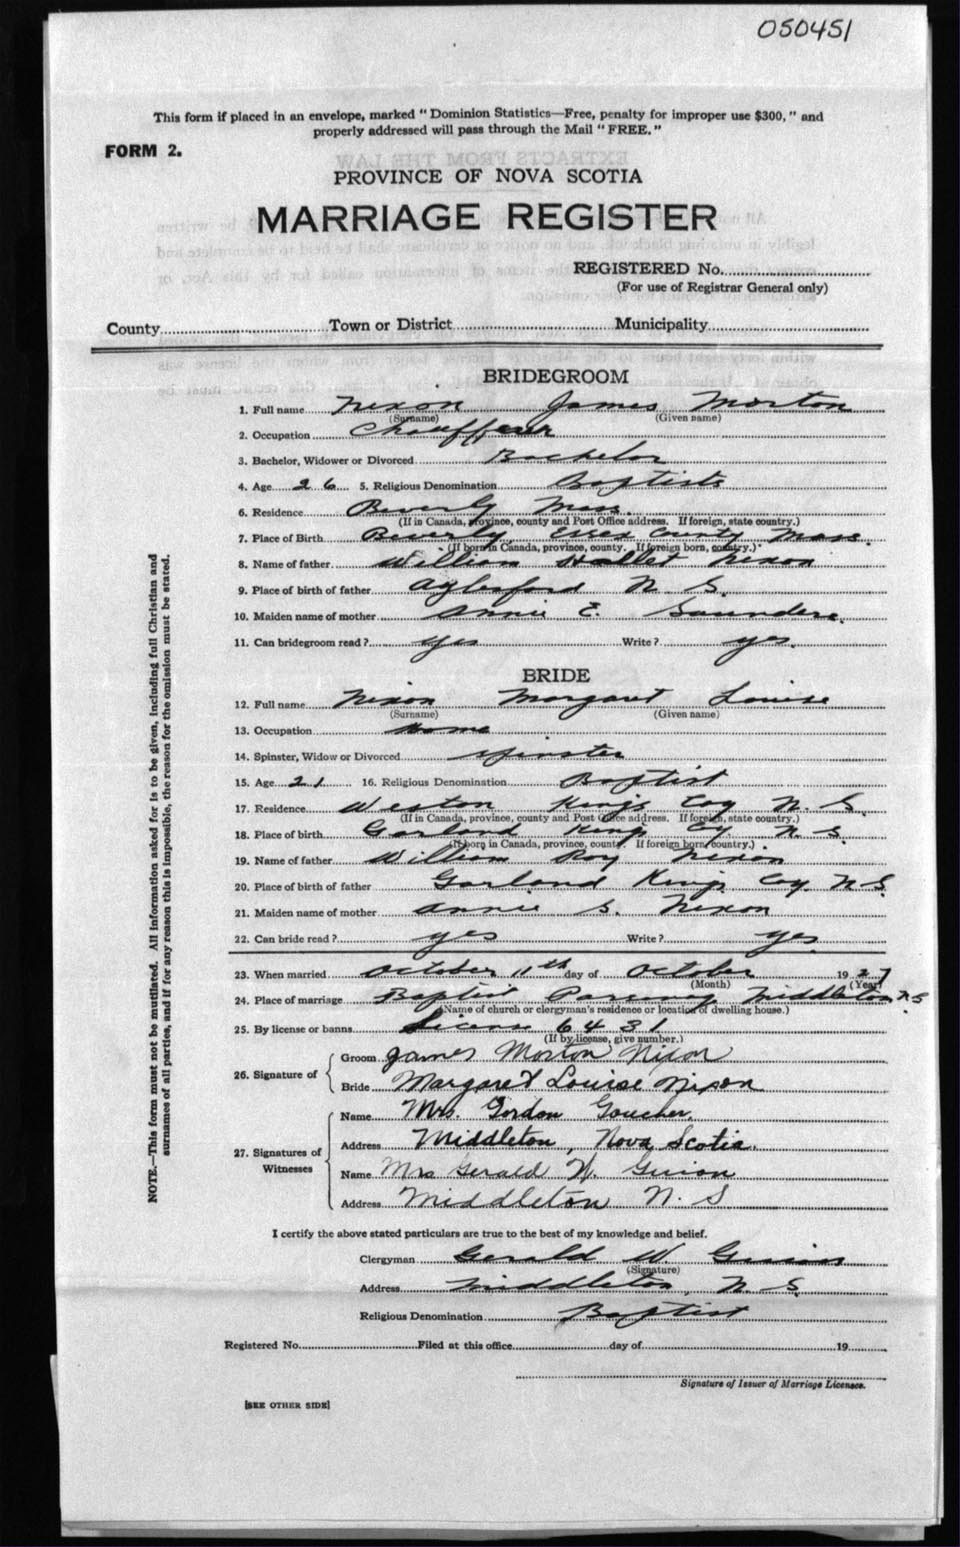 050451
This form if placed in an envelope, marked " Dominion Statistics—Free, penalty for improper use $300, " and
properly addressed will pass through the Mail " FREE. "
FORM 2.
PROVINCE OF NOVA SCOTIA
MARRIAGE REGISTER
REGISTERED No.
(For use of Registrar General only)
County Town or District Municipality
BRIDEGROOM
1. Full name Nixon James Morton
(Surname) (Given name)
2. Occupation Chauffeur
3. Bachelor, Widower or Divorced Bachelor
4. Age 26 5. Religious Denomination Baptists
6. Residence Beverly Mass.
(If in Canada, province, county and Post Office address. If foreign, state country.)
7. Place of Birth Beverly, Essex County Mass.
(If born in Canada, province, county. If foreign born, country.)
8. Name of father William Hallet Nixon
9. Place of birth of father Aylesford N. S.
10. Maiden name of mother Annie E. Saunders
11. Can bridegroom read? yes Write? yes.
BRIDE
12. Full name Nixon Margaret Louise
(Surname) (Given name)
13. Occupation Home
14. Spinster, Widow or Divorced Spinster
15. Age 21 16. Religious Denomination Baptist
17. Residence Weston Kings Coy N. S.
(If in Canada, province, county and Post Office address. If foreign, state country.)
18. Place of birth Garland Kings Coy. N. S.
(If born in Canada, province, county. If foreign born, country.)
19. Name of father William Roy Nixon
20. Place of birth of father Garland Kings Coy. N. S.
21. Maiden name of mother Annie S. Nixon
22. Can bride read? yes Write? yes.
23. When married October 11th day of October 1927
(Month) (Year)
24. Place of marriage Baptist Middleton N S
(Name of church or clergyman's residence or location of dwelling house.)
25. By license or banns License 6431
(If by license, give number.)
26. Signature of Groom James Morton Nixon
Bride Margaret Louise Nixon
27. Signatures of Witnesses Name Mrs. Gordon Goucher.
Address Middleton, Nova Scotia.
Name Mrs Gerald W. Guion
Address Middleton N. S
I certify the above stated particulars are true to the best of my knowledge and belief.
Clergyman Gerald W. Guion
(Signature)
Address Middleton, N. S.
Religious Denomination Baptist
Registered No. Filed at this office day of 19
Signature of Issuer of Marriage Licenses.
[SEE OTHER SIDE]
NOTE.—This form must not be mutilated. All information asked for is to be given, including full Christian and
surnames of all parties, and if for any reason this is impossible, the reason for the omission must be stated.